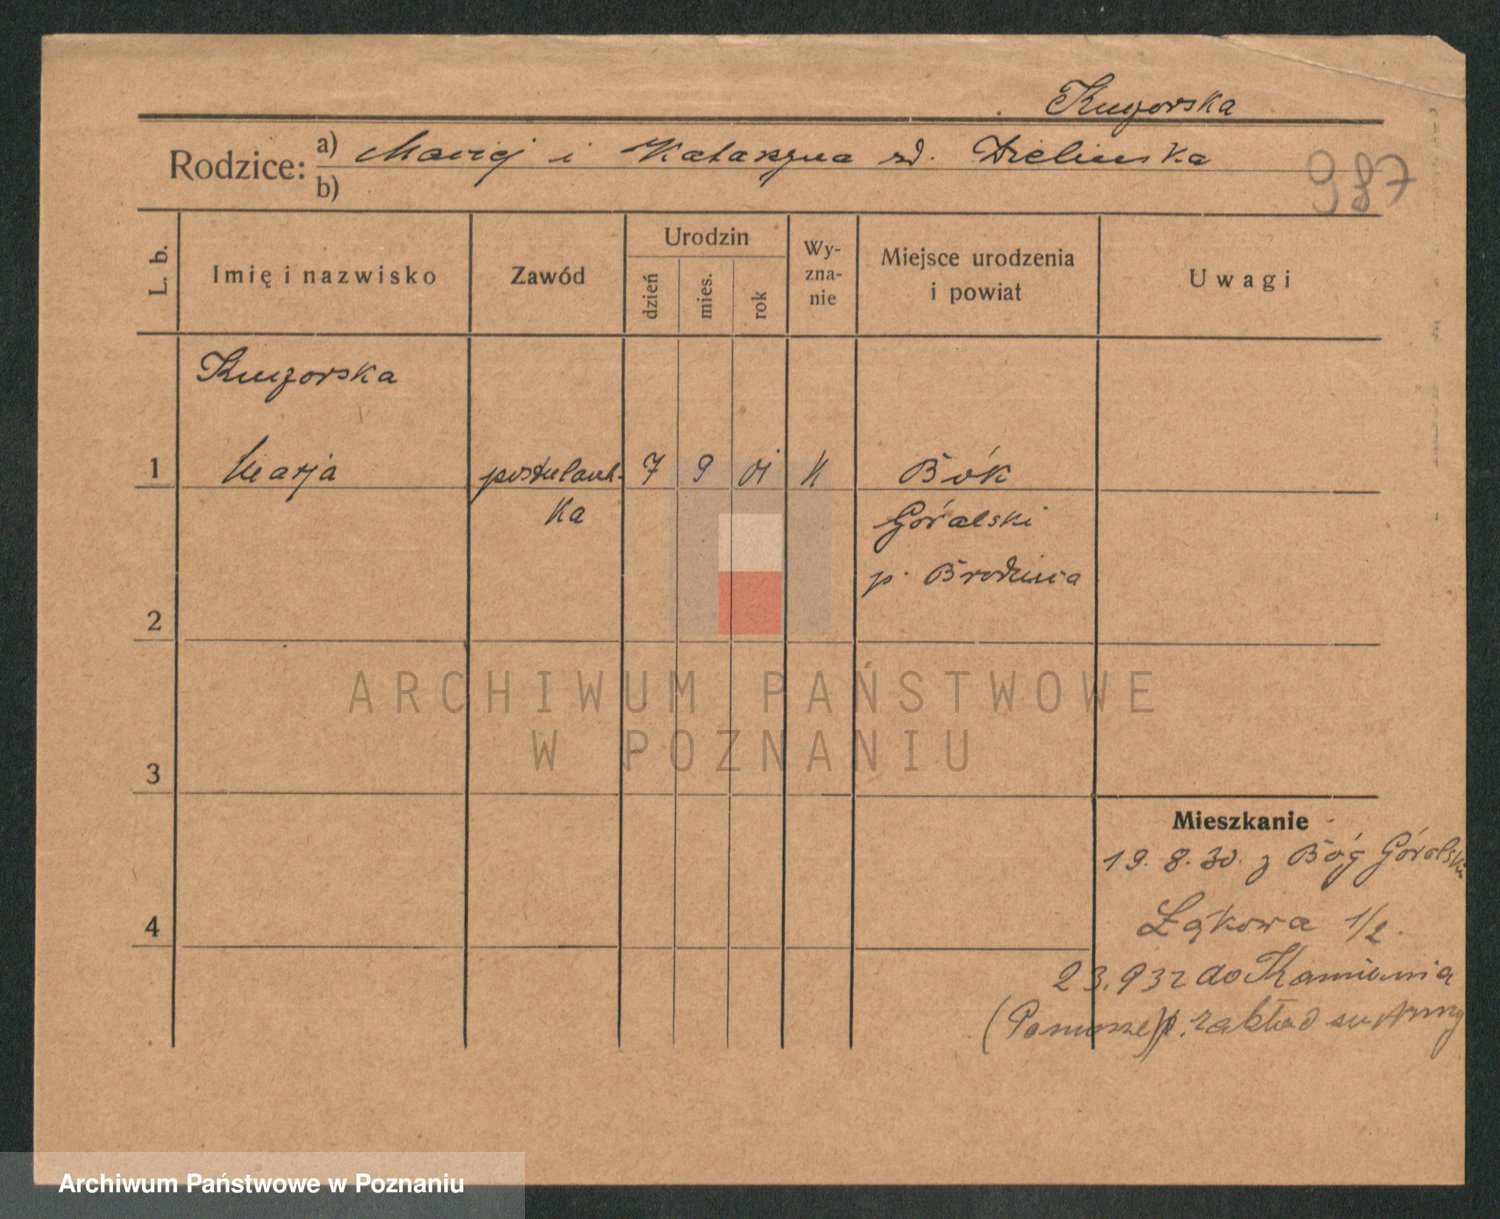 Kuzorska
Rodzice: a) Maciej i Katarzyna zd. Dzielinska
b)
987
L. b.
Imię i nazwisko
Zawód
Urodzin
dzień
mies.
rok
Wy-
zna-
nie
Miejsce urodzenia
i powiat
Uwagi
Kuzorska
1 Marja postulant- 7 9 01 K Bók
ka Góralski
p. Brodnica
2
3
4
Mieszkanie
19.8.30. z Bóg Góralski
Łąkowa 1/2.
23.932 do Kamienia
(Pomorze) zakład św Anny
ARCHIWUM PAŃSTWOWE
W POZNANIU
Archiwum Państwowe w Poznaniu